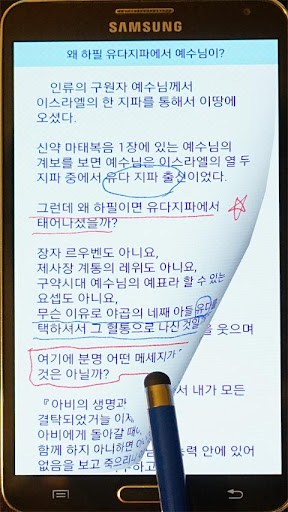 SAMSUNG
왜 하필 유다지파에서 예수님이?
인류의 구원자 예수님께서
이스라엘의 한 지파를 통해서 이땅에
오셨다.
신약 마태복음 1장에 있는 예수님의
계보를 보면 예수님은 이스라엘의 열 두
지파 중에서 유다 지파 출신이었다.
그런데 왜 하필이면 유다지파에서
태어나셨을까?
장자 르우벤도 아니요,
제사장 계통의 레위도 아니요,
구약시대 예수님의 예표라 할 수 있는
요셉도 아니요,
무슨 이유로 야곱의 네째 아들 유다를
택하셔서 그 혈통으로 나신 것일까
을 웃으며
여기에 분명 어떤 메세지가
것은 아닐까?
서 내가 모든
『아비의 생명과
결탁되었거늘 이제
아비에게 돌아갈 때
함께 하지 아니하면 아
능력 안에 있어
없음을 보고 죽으리니
하고